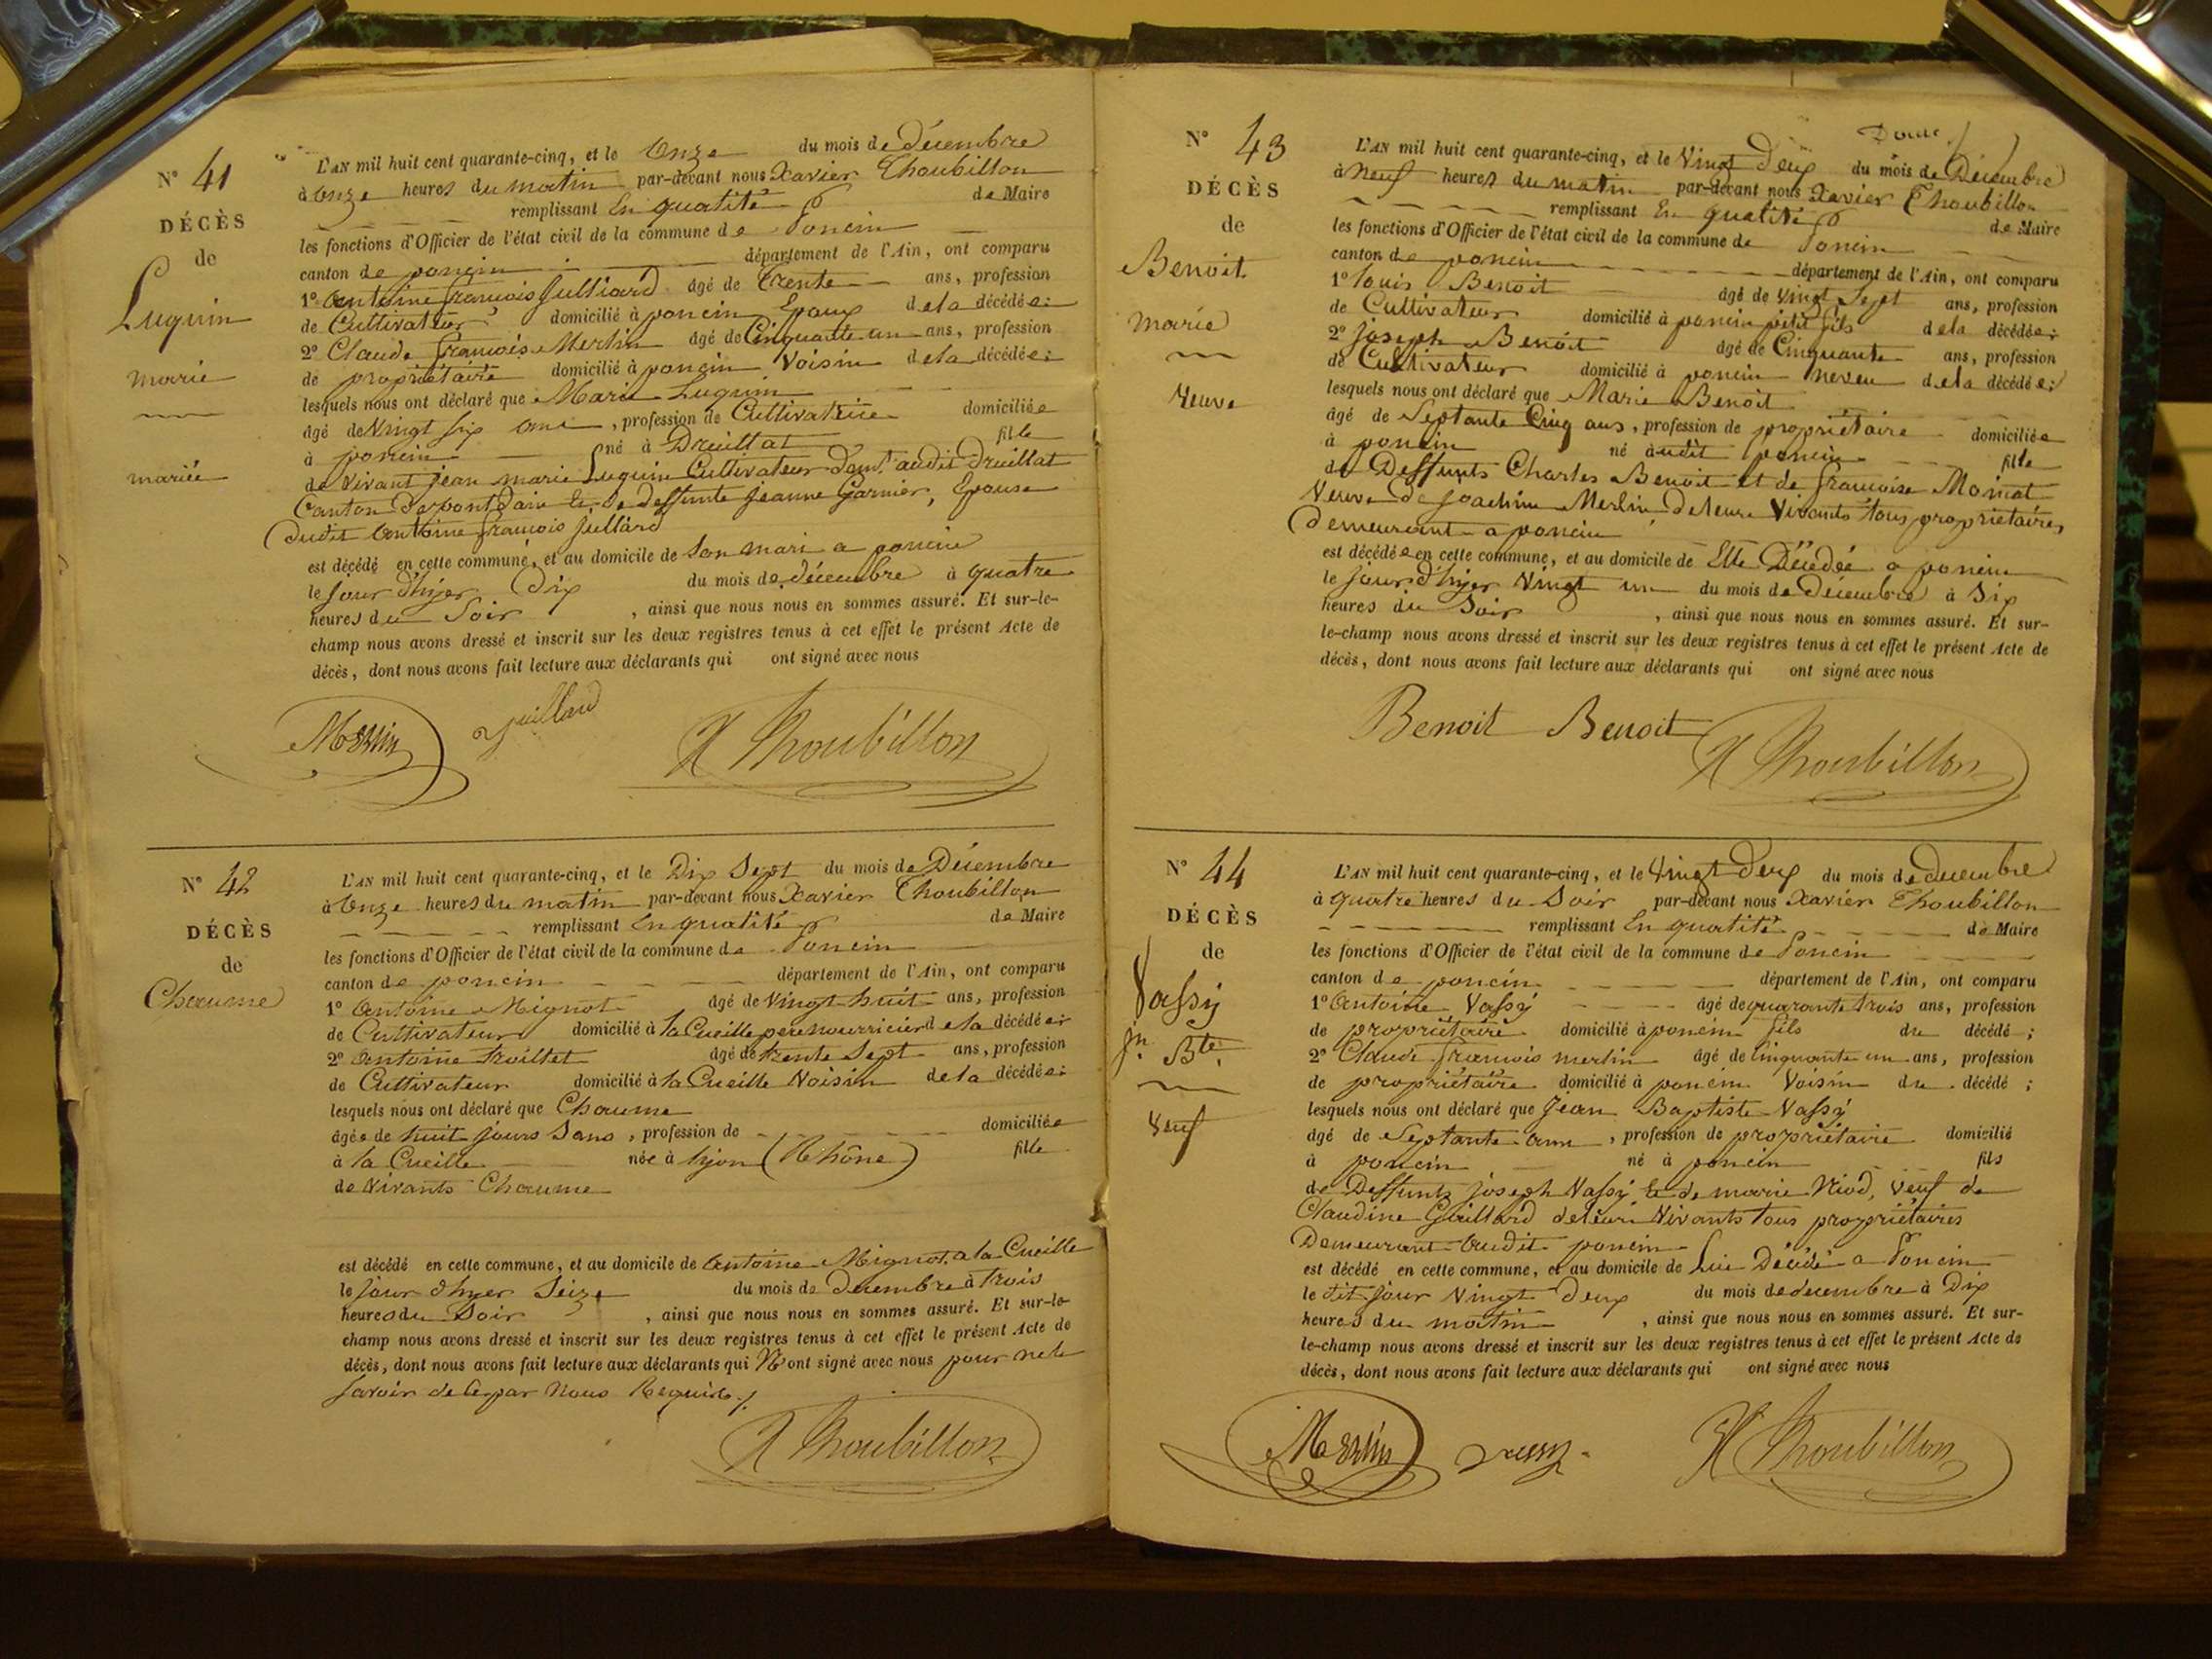 N° 41
DÉCÈS
de
Luquin
marie
mariée
L'AN mil huit cent quarante-cinq, et le Onze du mois de Décembre
à Onze heures du matin par-devant nous Xavier Thoubillon
remplissant En qualité de Maire
les fonctions d'Officier de l'état civil de la commune de Poncin
canton de poncin département de l'Ain, ont comparu
1° Antoine françois Julliard âgé de Trente ans, profession
de Cultivateur domicilié à poncin Epoux de la décédée;
2° Claude françois Merlin âgé de Cinquante un ans, profession
de propriétaire domicilié à poncin Voisin de la décédée;
lesquels nous ont déclaré que Marie Luquin
âgé de Vingt six ans, profession de Cultivatrice domiciliée
à poncin né à Druillat fille
de Vivant jean marie Luquin Cultivateur Demt audit Druillat
Canton De pont Dain Et de deffunte jeanne Garnier, Epouse
dudit Antoine françois Julliard
est décédé en cette commune, et au domicile de Son mari a poncin
le jour d'hyer Dix du mois de décembre à quatre
heures du Soir, ainsi que nous nous en sommes assuré. Et sur-le-
champ nous avons dressé et inscrit sur les deux registres tenus à cet effet le présent Acte de
décès, dont nous avons fait lecture aux déclarants qui ont signé avec nous
Merlin Juillard X Thoubillon
N° 42
DÉCÈS
de
Chaume
L'AN mil huit cent quarante-cinq, et le Dix Sept du mois de Décembre
à Onze heures du matin par-devant nous Xavier Thoubillon
remplissant En qualité de Maire
les fonctions d'Officier de l'état civil de la commune de Poncin
canton de poncin département de l'Ain, ont comparu
1° Antoine Mignot âgé de Vingt huit ans, profession
de Cultivateur domicilié à la Cueille pere nourricier de la décédée;
2° Antoine troillet âgé de trente Sept ans, profession
de Cultivateur domicilié à la Cueille Voisin de la décédée;
lesquels nous ont déclaré que Chaume
âgée de huit jours Sans, profession de domiciliée
à la Cueille née à Lyon (Rhône) fille
de Vivants Chaume
est décédé en cette commune, et au domicile de Antoine Mignot, a la Cueille
le jour d'hyer Seize du mois de Décembre à trois
heures du Soir, ainsi que nous nous en sommes assuré. Et sur-le-
champ nous avons dressé et inscrit sur les deux registres tenus à cet effet le présent Acte de
décès, dont nous avons fait lecture aux déclarants qui N'ont signé avec nous pour ne le
Savoir de Ce par Nous Requis
X Thoubillon
N° 43
DÉCÈS
de
Benoit
marie
Veuve
L'AN mil huit cent quarante-cinq, et le Vingt Deux du mois de Décembre
à neuf heures du matin par-devant nous Xavier Thoubillon
remplissant En qualité de Maire
les fonctions d'Officier de l'état civil de la commune de Poncin
canton de poncin département de l'Ain, ont comparu
1° Louis Benoit âgé de vingt Sept ans, profession
de Cultivateur domicilié à poncin petit fils de la décédée;
2° joseph Benoit âgé de Cinquante ans, profession
de Cultivateur domicilié à poncin neveu de la décédée;
lesquels nous ont déclaré que Marie Benoit
âgé de Septante Cinq ans, profession de propriétaire domiciliée
à poncin né audit poncin fille
de Deffunts Charles Benoit et de françoise Moinat
Veuve De Joachim Merlin de leurs Vivants tous propriétaires
Demeurant a poncin
est décédée en cette commune, et au domicile de Elle Décédée a poncin
le jour d'hyer Vingt un du mois de Décembre à Six
heures du Soir, ainsi que nous nous en sommes assuré. Et sur-
le-champ nous avons dressé et inscrit sur les deux registres tenus à cet effet le présent Acte de
décès, dont nous avons fait lecture aux déclarants qui ont signé avec nous
Benoit Benoit X Thoubillon
N° 44
DÉCÈS
de
Vassy
jn Bte
Veuf
L'AN mil huit cent quarante-cinq, et le Vingt Deux du mois de decembre
à quatre heures du Soir par-devant nous Xavier Thoubillon
remplissant En qualité de Maire
les fonctions d'Officier de l'état civil de la commune de Poncin
canton de poncin département de l'Ain, ont comparu
1° Antoine Vassy âgé de quarante trois ans, profession
de propriétaire domicilié à poncin fils du décédé;
2° Claude françois merlin âgé de Cinquante un ans, profession
de propriétaire domicilié à poncin Voisin du décédé;
lesquels nous ont déclaré que Jean Baptiste Vassy
âgé de Septante ans, profession de propriétaire domicilié
à poncin né à poncin fils
de Deffunts joseph Vassy Et de marie Niod, Veuf de
Claudine Guillard de leurs Vivants tous propriétaires
Demeurant audit poncin
est décédé en cette commune, et au domicile de Lui Décédé a Poncin
le dit jour Vingt Deux du mois de decembre à Dix
heures du matin, ainsi que nous nous en sommes assuré. Et sur-
le-champ nous avons dressé et inscrit sur les deux registres tenus à cet effet le présent Acte de
décès, dont nous avons fait lecture aux déclarants qui ont signé avec nous
Merlin Vassy X Thoubillon